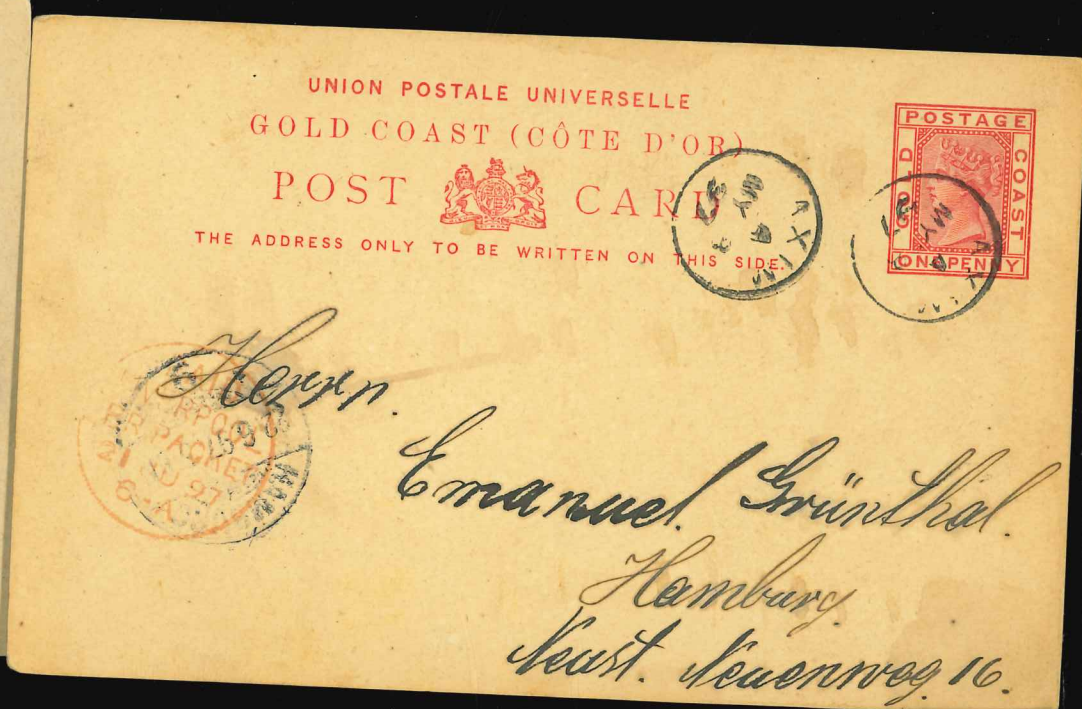 UNION POSTALE UNIVERSELLE
GOLD COAST (CÔTE D'OR)
POST CARD
THE ADDRESS ONLY TO BE WRITTEN ON THIS SIDE.
POSTAGE
GOLD
COAST
ONE PENNY
AXIM
MY
97
AXIM
MY
LIVERPOOL
BR PACKET
21 JU 97
Herrn.
Emanuel. Grünthal.
Hamburg
Neuenweg 16.